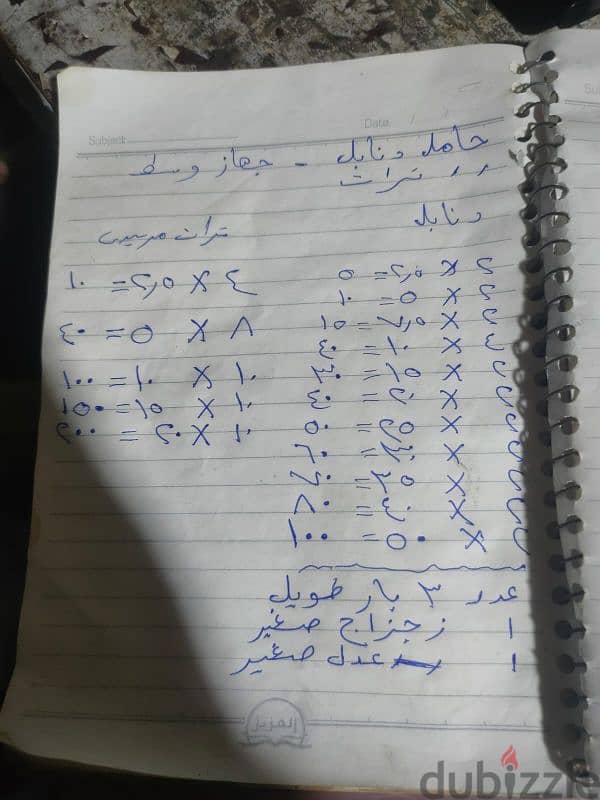 Subject:
Date:
Su
حامل دنابل - جهاز وسط
٫٫ تراث
دنابل
٢ X ٢٫٥ = ٥
٢ X ٥ = ١٠
٢ X ٧٫٥ = ١٥
٤ X ١٠ = ٤٠
٢ X ١٥ = ٣٠
٢ X ٢٠ = ٤٠
٢ X ٢٥ = ٥٠
٢ X ٣٠ = ٦٠
٢ X ٣٥ = ٧٠
٢ X ٤٠ = ٨٠
٢ X ٥٠ = ١٠٠
تراث
٤ X ٢٫٥ = ١٠
٨ X ٥ = ٤٠
١٠ X ١٠ = ١٠٠
١٠ X ١٥ = ١٥٠
١٠ X ٢٠ = ٢٠٠
عدد ٣ بار طويل
١ زجزاج صغير
١ عدل صغير
dubizzle